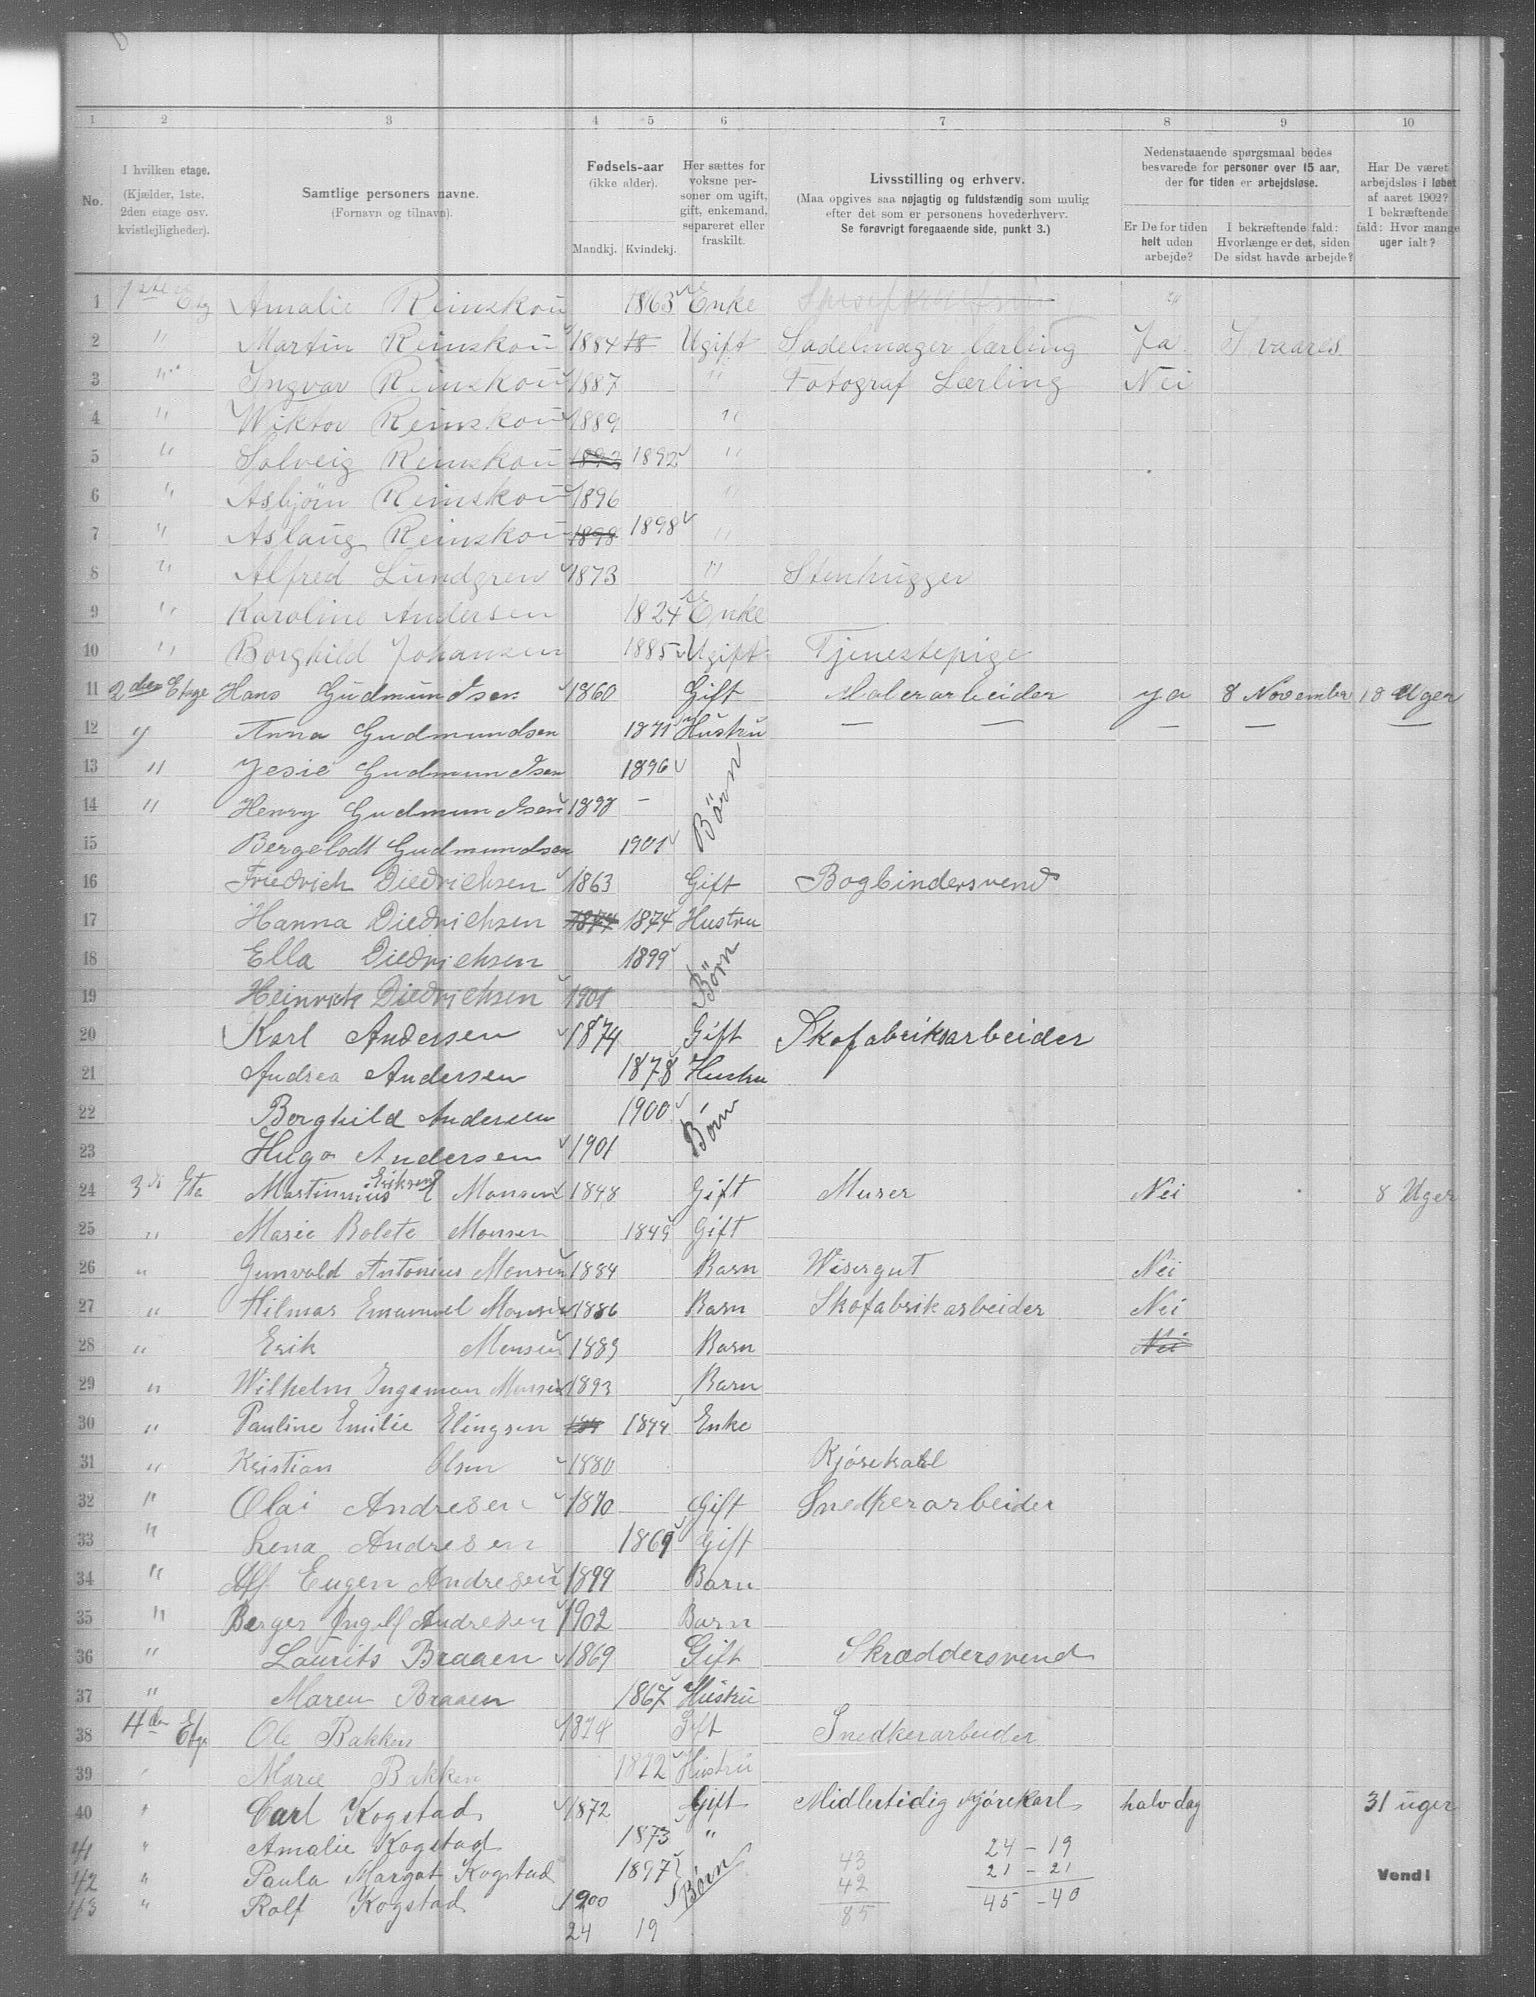 1 2 3 4 5 6 7 8 9 10
No.
I hvilken etage.
(Kjælder, 1ste.
2den etage osv.
kvistlejligheder).
Samtlige personers navne.
(Fornavn og tilnavn).
Fødsels-aar
(ikke alder).
Mandkj. Kvindekj.
Her sættes for
voksne per-
soner om ugift,
gift, enkemand,
separeret eller
fraskilt.
Livsstilling og erhverv.
(Maa opgives saa nøjagtig og fuldstændig som mulig
efter det som er personens hovederhverv.
Se forøvrigt foregaaende side, punkt 3.)
Nedenstaaende spørgsmaal bedes
besvarede for personer over 15 aar,
der for tiden er arbejdsløse.
Er De for tiden
helt uden
arbejde?
I bekræftende fald:
Hvorlænge er det, siden
De sidst havde arbejde?
Har De været
arbejdsløs i løbet
af aaret 1902?
I bekræftende
fald: Hvor mange
uger ialt?
1 1ste Etg Amalie Reinskou 1863 Enke "
2 " Martin Reinskou 1884 18 Ugift Sadelmager lærling Ja
3 " Ingvar Reinskou 1887 " Fotograf Lærling Nei
4 " Wiktor Reinskou 1889 "
5 " Solveig Reinskou 1892 1892 "
6 " Asbjörn Reinskou 1896 "
7 " Aslaug Reinskou 1898 1898 "
8 " Alfred Lundgren 1873 " Stenhugger
9 " Karoline Andersen 1824 Enke
10 " Borghild Johansen 1885 Ugift Tjenestepige
11 2den Etage Hans Gudmundsen 1860 Gift Malerarbeider ya 8 November 18 Uger
12 " Anna Gudmundsen 1871 Hustru — — — — —
13 " Jesie Gudmundsen 1896 Børn
14 " Henry Gudmundsen 1898 –
15 Bergelodt Gudmundsen 1901
16 Friedrich Diedrichsen 1863 Gift Bogbindersvend
17 Hanna Diedrichsen 1874 1874 Hustru
18 Ella Diedrichsen 1899 Børn
19 Heinrich Diedrichsen 1901
20 Karl Andersen 1874 Gift Skofabriksarbeider
21 Andrea Andersen 1878 Hustru
22 Borghild Andersen 1900 Børn
23 Hugo Andersen 1901
24 3di Eta Martinnius Eriksen Monsen 1848 Gift Murer Nei 8 Uger
25 " Marie Bolete Monsen 1849 Gift
26 " Gunvald Antonius Monsen 1884 Barn Wisergut Nei
27 " Hilmar Emanuel Monsen 1886 Barn Skofabrikarbeider Nei
28 " Erik Monsen 1889 Barn Nei
29 " Wilhelm Ingeman Monsen 1893 Barn
30 " Pauline Emilie Elingsen 184 1844 Enke
31 " Kristian Olsen 1880 Kjørekarl
32 " Olai Andresen 1870 Gift Snedkerarbeider
33 " Lena Andresen 1869 Gift
34 " Alf Eugen Andresen 1899 Barn
35 " Berger Ingolf Andresen 1902 Barn
36 " Laurits Braaen 1869 Gift Skræddersvend
37 " Maren Braaen 1867 Hustru
38 4de Etg Ole Bakken 1874 Gift Snedkerarbeider
39 " Marie Bakken 1872 Hustru
40 " Carl Kogstad 1872 Gift Midlertidig kjørekarl halv dag 31 uger
41 " Amalie Kogstad 1873 "
42 " Paula Margot Kogstad 1897 Børn
43 " Rolf Kogstad 1900
24 19
43
42
85
24 – 19
21 – 21
45 – 40
Vend!